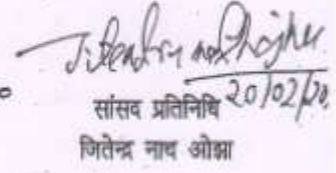 Jitendra nath ojha
20/02/20
सांसद प्रतिनिधि
जितेन्द्र नाथ ओझा